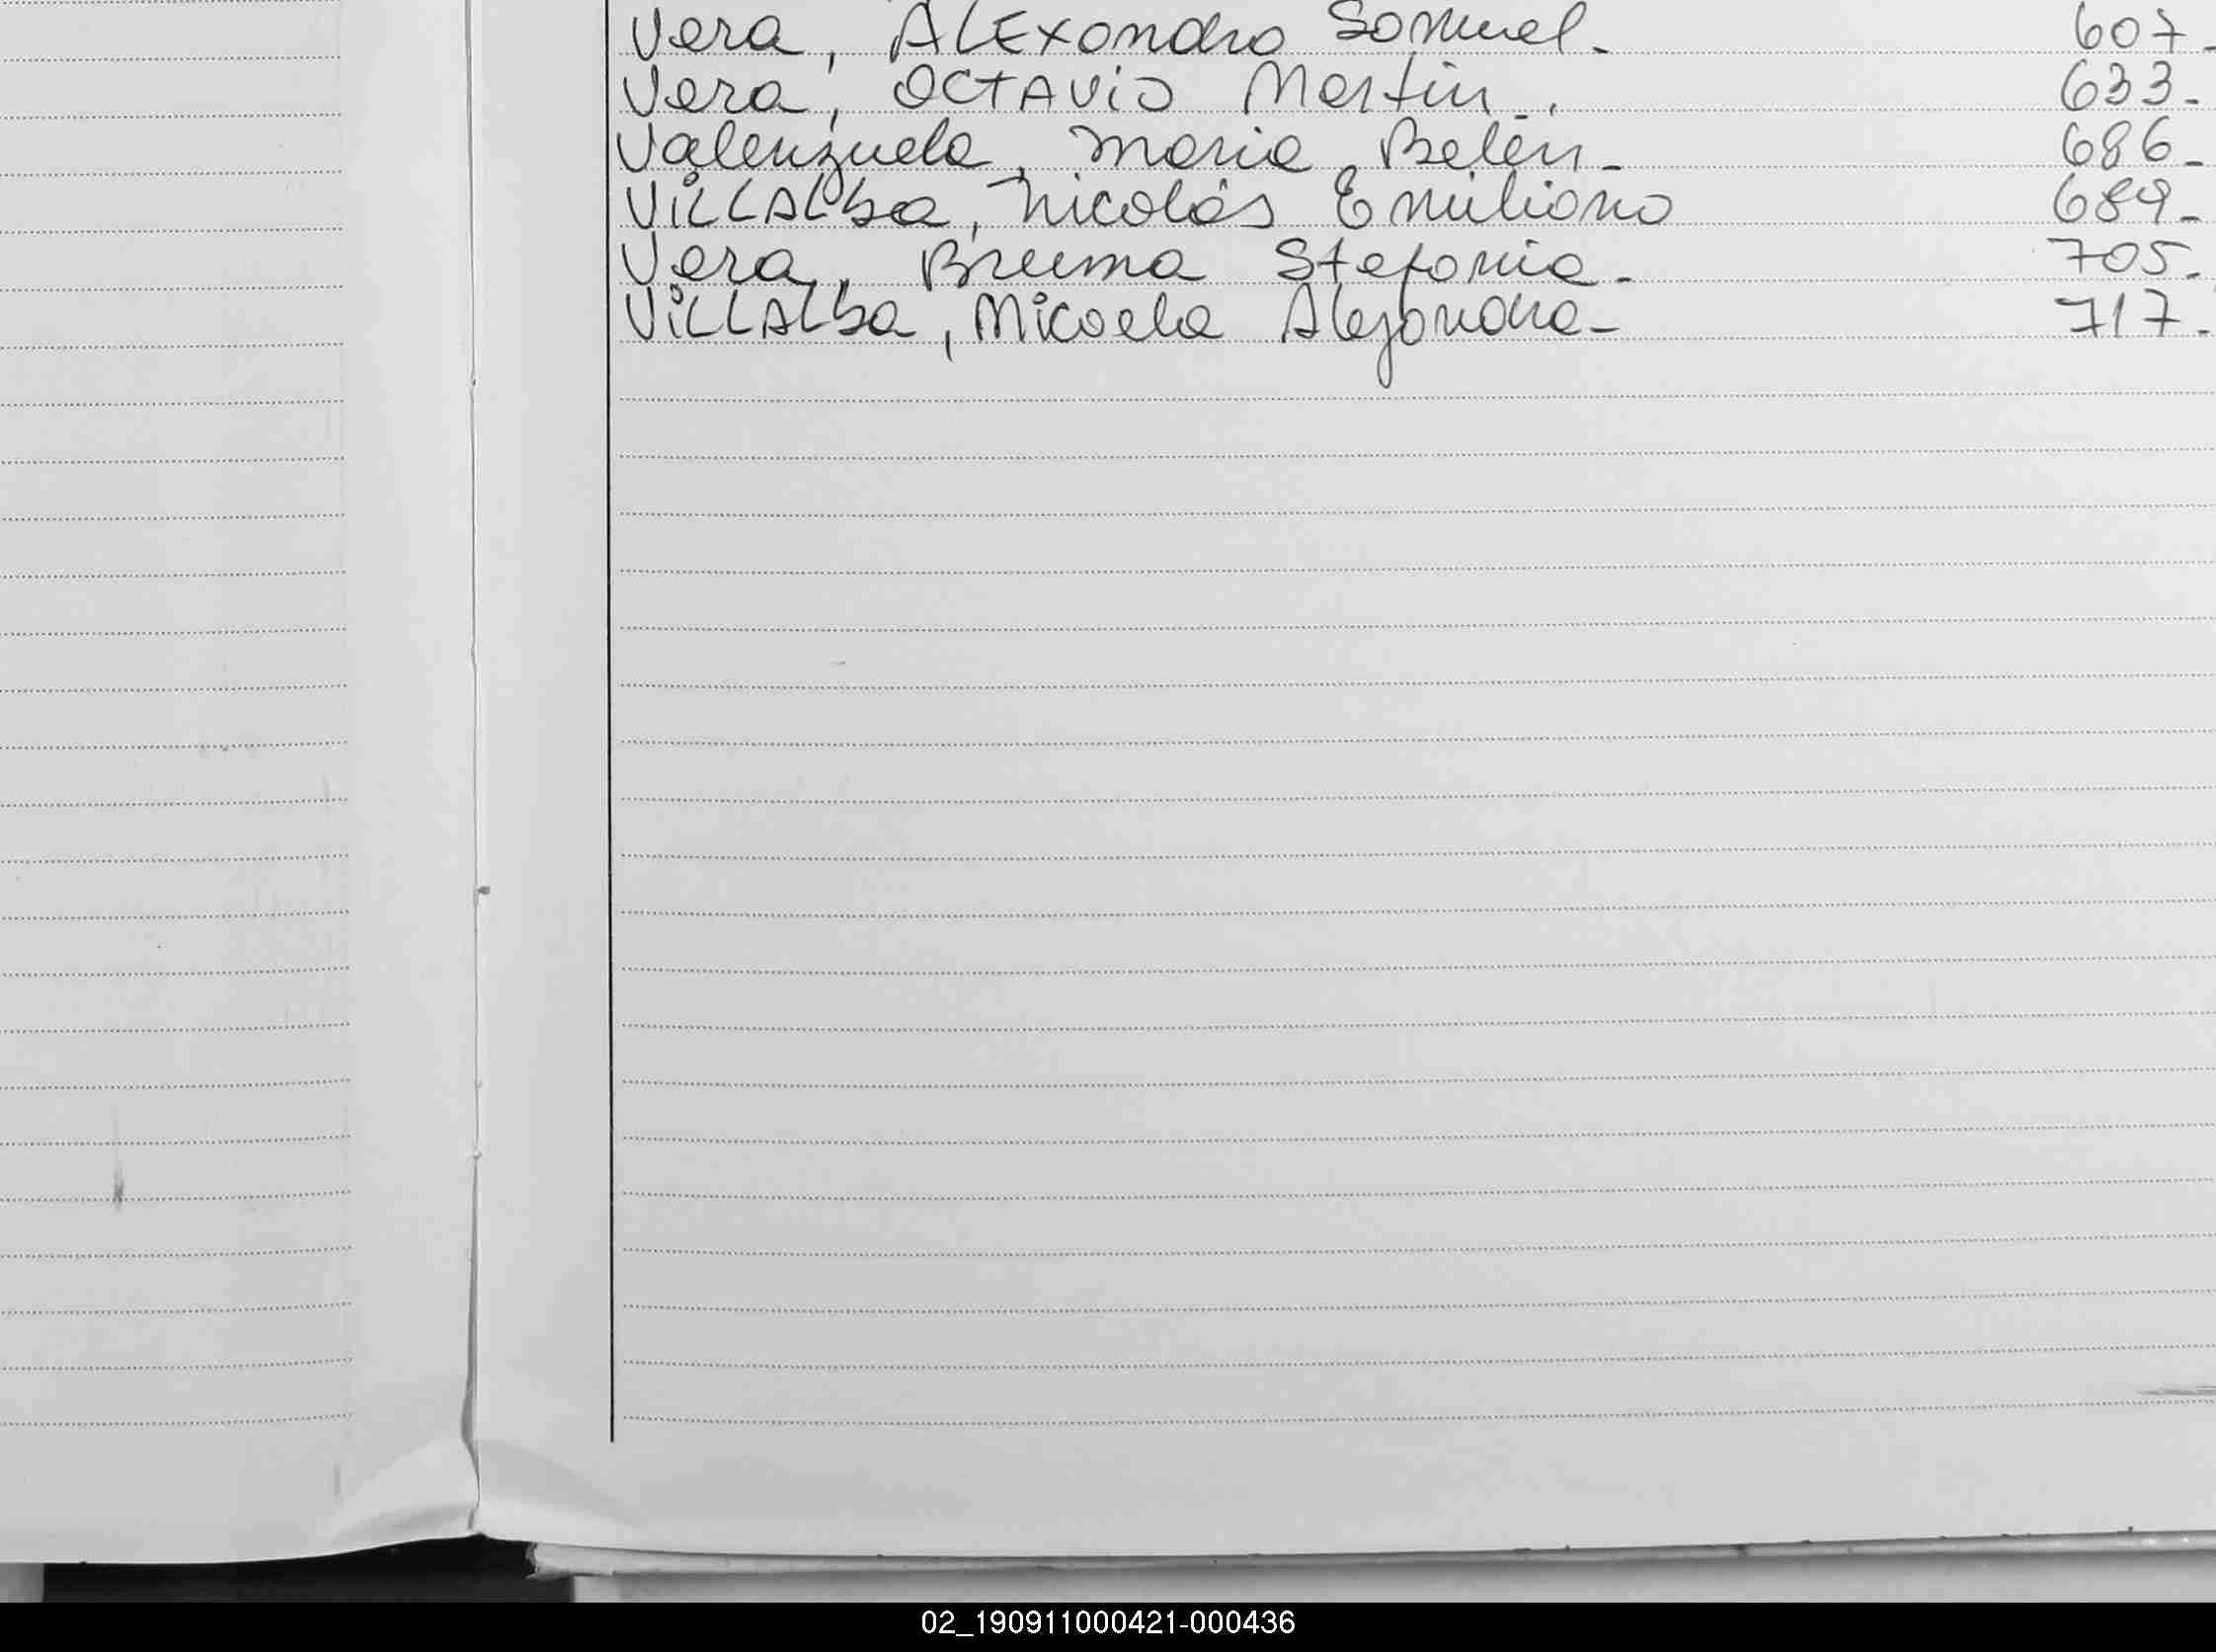 Vera, ALEXandro Samuel. 607.
Vera, OCTAVIO Martin. 633.
Valenzuela, Maria Belén. 686.
VILLALba, Nicolás Emiliano 689.
Vera, Bruma Stefania. 705.
VILLALba, Micaela Alejandra. 717.
02_190911000421-000436